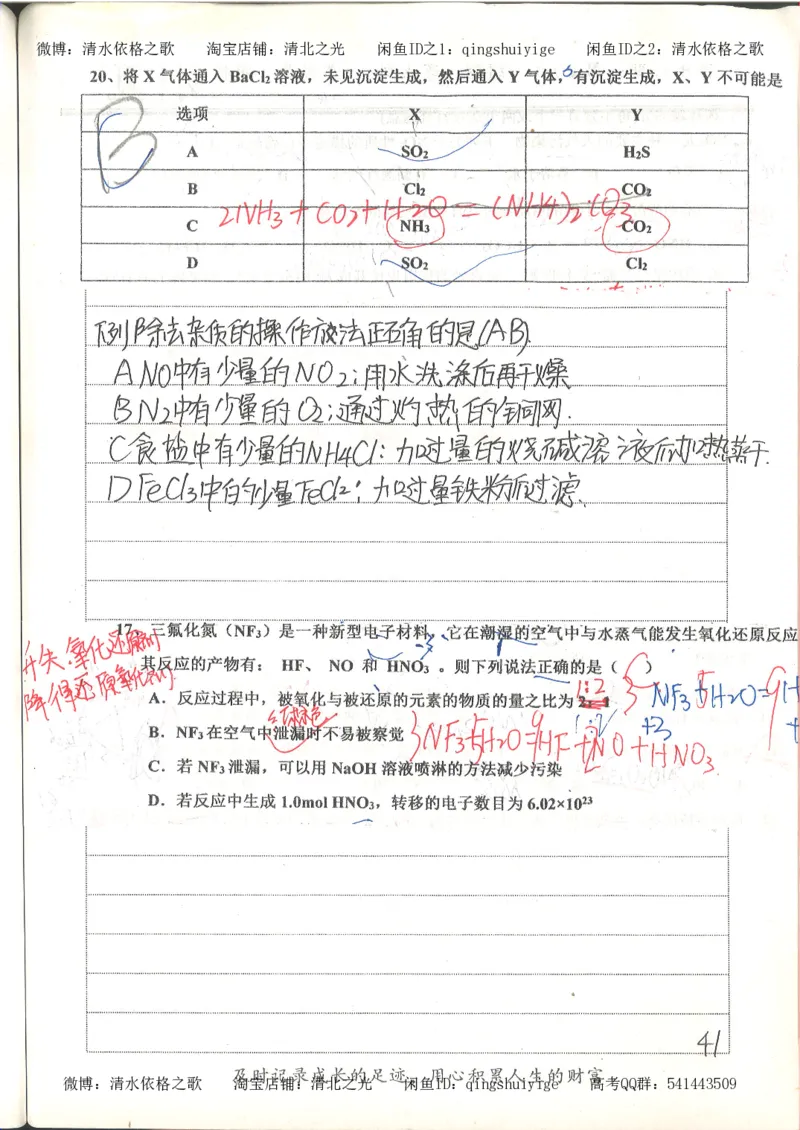 微博：清水依格之歌 淘宝店铺：清北之光 闲鱼ID之1：qingshuiyige 闲鱼ID之2：清水依格之歌
20、将 X 气体通入 BaCl₂ 溶液，未见沉淀生成，然后通入 Y 气体，有沉淀生成，X、Y 不可能是
选项 X Y
B
A SO₂ H₂S
B Cl₂ CO₂
2NH3+CO2+H2O=(NH4)2CO3
C NH₃ CO₂
D SO₂ Cl₂
下列除去杂质的操作方法正确的是(AB)
A NO中有少量的NO2;用水洗涤后再干燥
B N2中有少量的O2;通过灼热的铜网.
C 食盐中有少量的NH4Cl:加过量的烧碱溶液后加热蒸干.
D FeCl3中的少量FeCl2:加过量铁粉后过滤.
17、三氟化氮（NF₃）是一种新型电子材料，它在潮湿的空气中与水蒸气能发生氧化还原反应
升失氧化还原剂
其反应的产物有： HF、 NO 和 HNO₃ 。则下列说法正确的是（ ）
降得还原氧化剂
A．反应过程中，被氧化与被还原的元素的物质的量之比为 2：1
1:2
3NF3+5H2O=9H
B．NF₃ 在空气中泄漏时不易被察觉
红棕色
3NF3+5H2O=9HF+2NO+HNO3
C．若 NF₃ 泄漏，可以用 NaOH 溶液喷淋的方法减少污染
D．若反应中生成 1.0mol HNO₃，转移的电子数目为 6.02×10²³
41
及时记录成长的足迹 用心积累人生的财富
微博：清水依格之歌 淘宝店铺：清北之光 闲鱼ID之2：qingshuiyige 高考QQ群：541443509